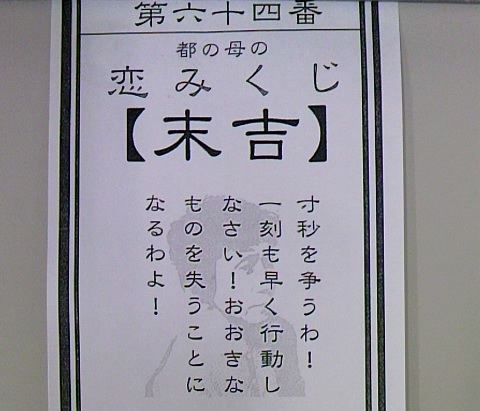 第六十四番
都の母の
恋みくじ
【末吉】
寸秒を争うわ！
一刻も早く行動し
なさい！おおきな
ものを失うことに
なるわよ！